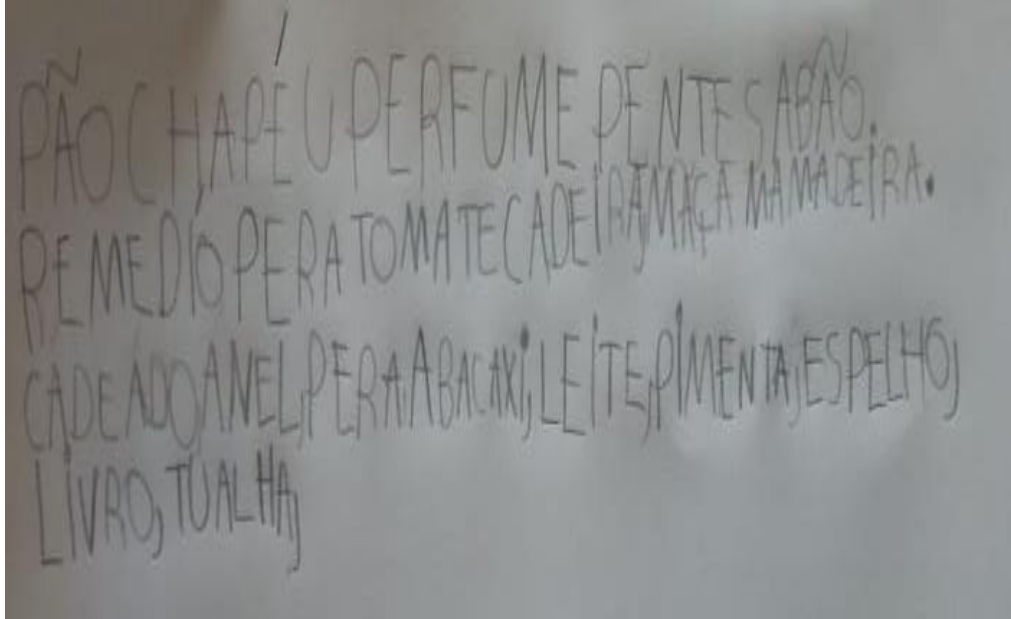 PÃO CHAPÉU PERFUME PENTE SABÃO.
REMEDÍO PERA TOMATE CADEIRA, MAÇA MAMADEIRA.
CADEADO, ANEL, PERA ABACAXI, LEITE, PIMENTA, ESPELHO,
LIVRO, TUALHA,